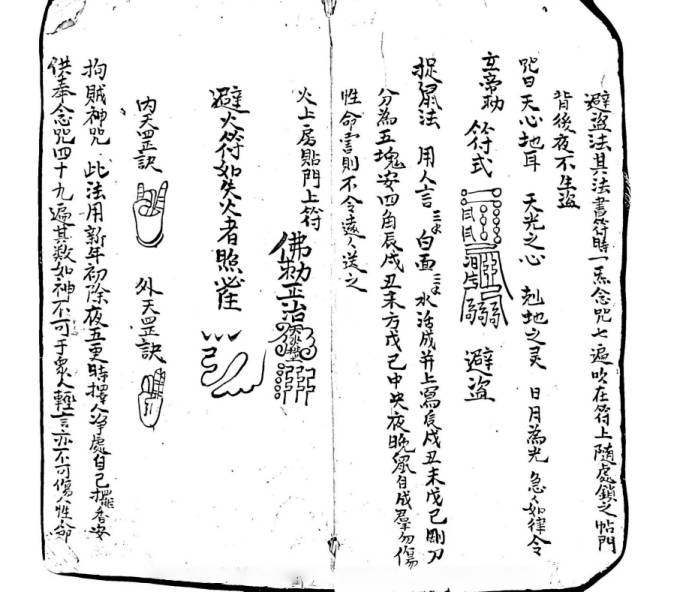 避盜法其法書符時一炁念咒七遍吹在符上隨處鎖之帖門
背後夜不生盜
咒曰天心地耳 天光之心 剋地之灵 日月為光 急急如律令
立帝勅 符式 避盜
捉鼠法 用人言三錢 白面三錢 水活成并上寫辰戌丑未戊己剛刀
分為五塊安四角辰戌丑未方戊己中央夜晚鼠自成羣勿傷
性命害則不令遠遠送之
火上房貼門上符 佛勅正治
避火符如失火者照崔
內天罡訣 外天罡訣
拘賊神咒 此法用新年初除夜五更時擇人净處自己擺香安
供奉念咒四十九遍其数如神不可于衆人輕言亦不可傷人性命